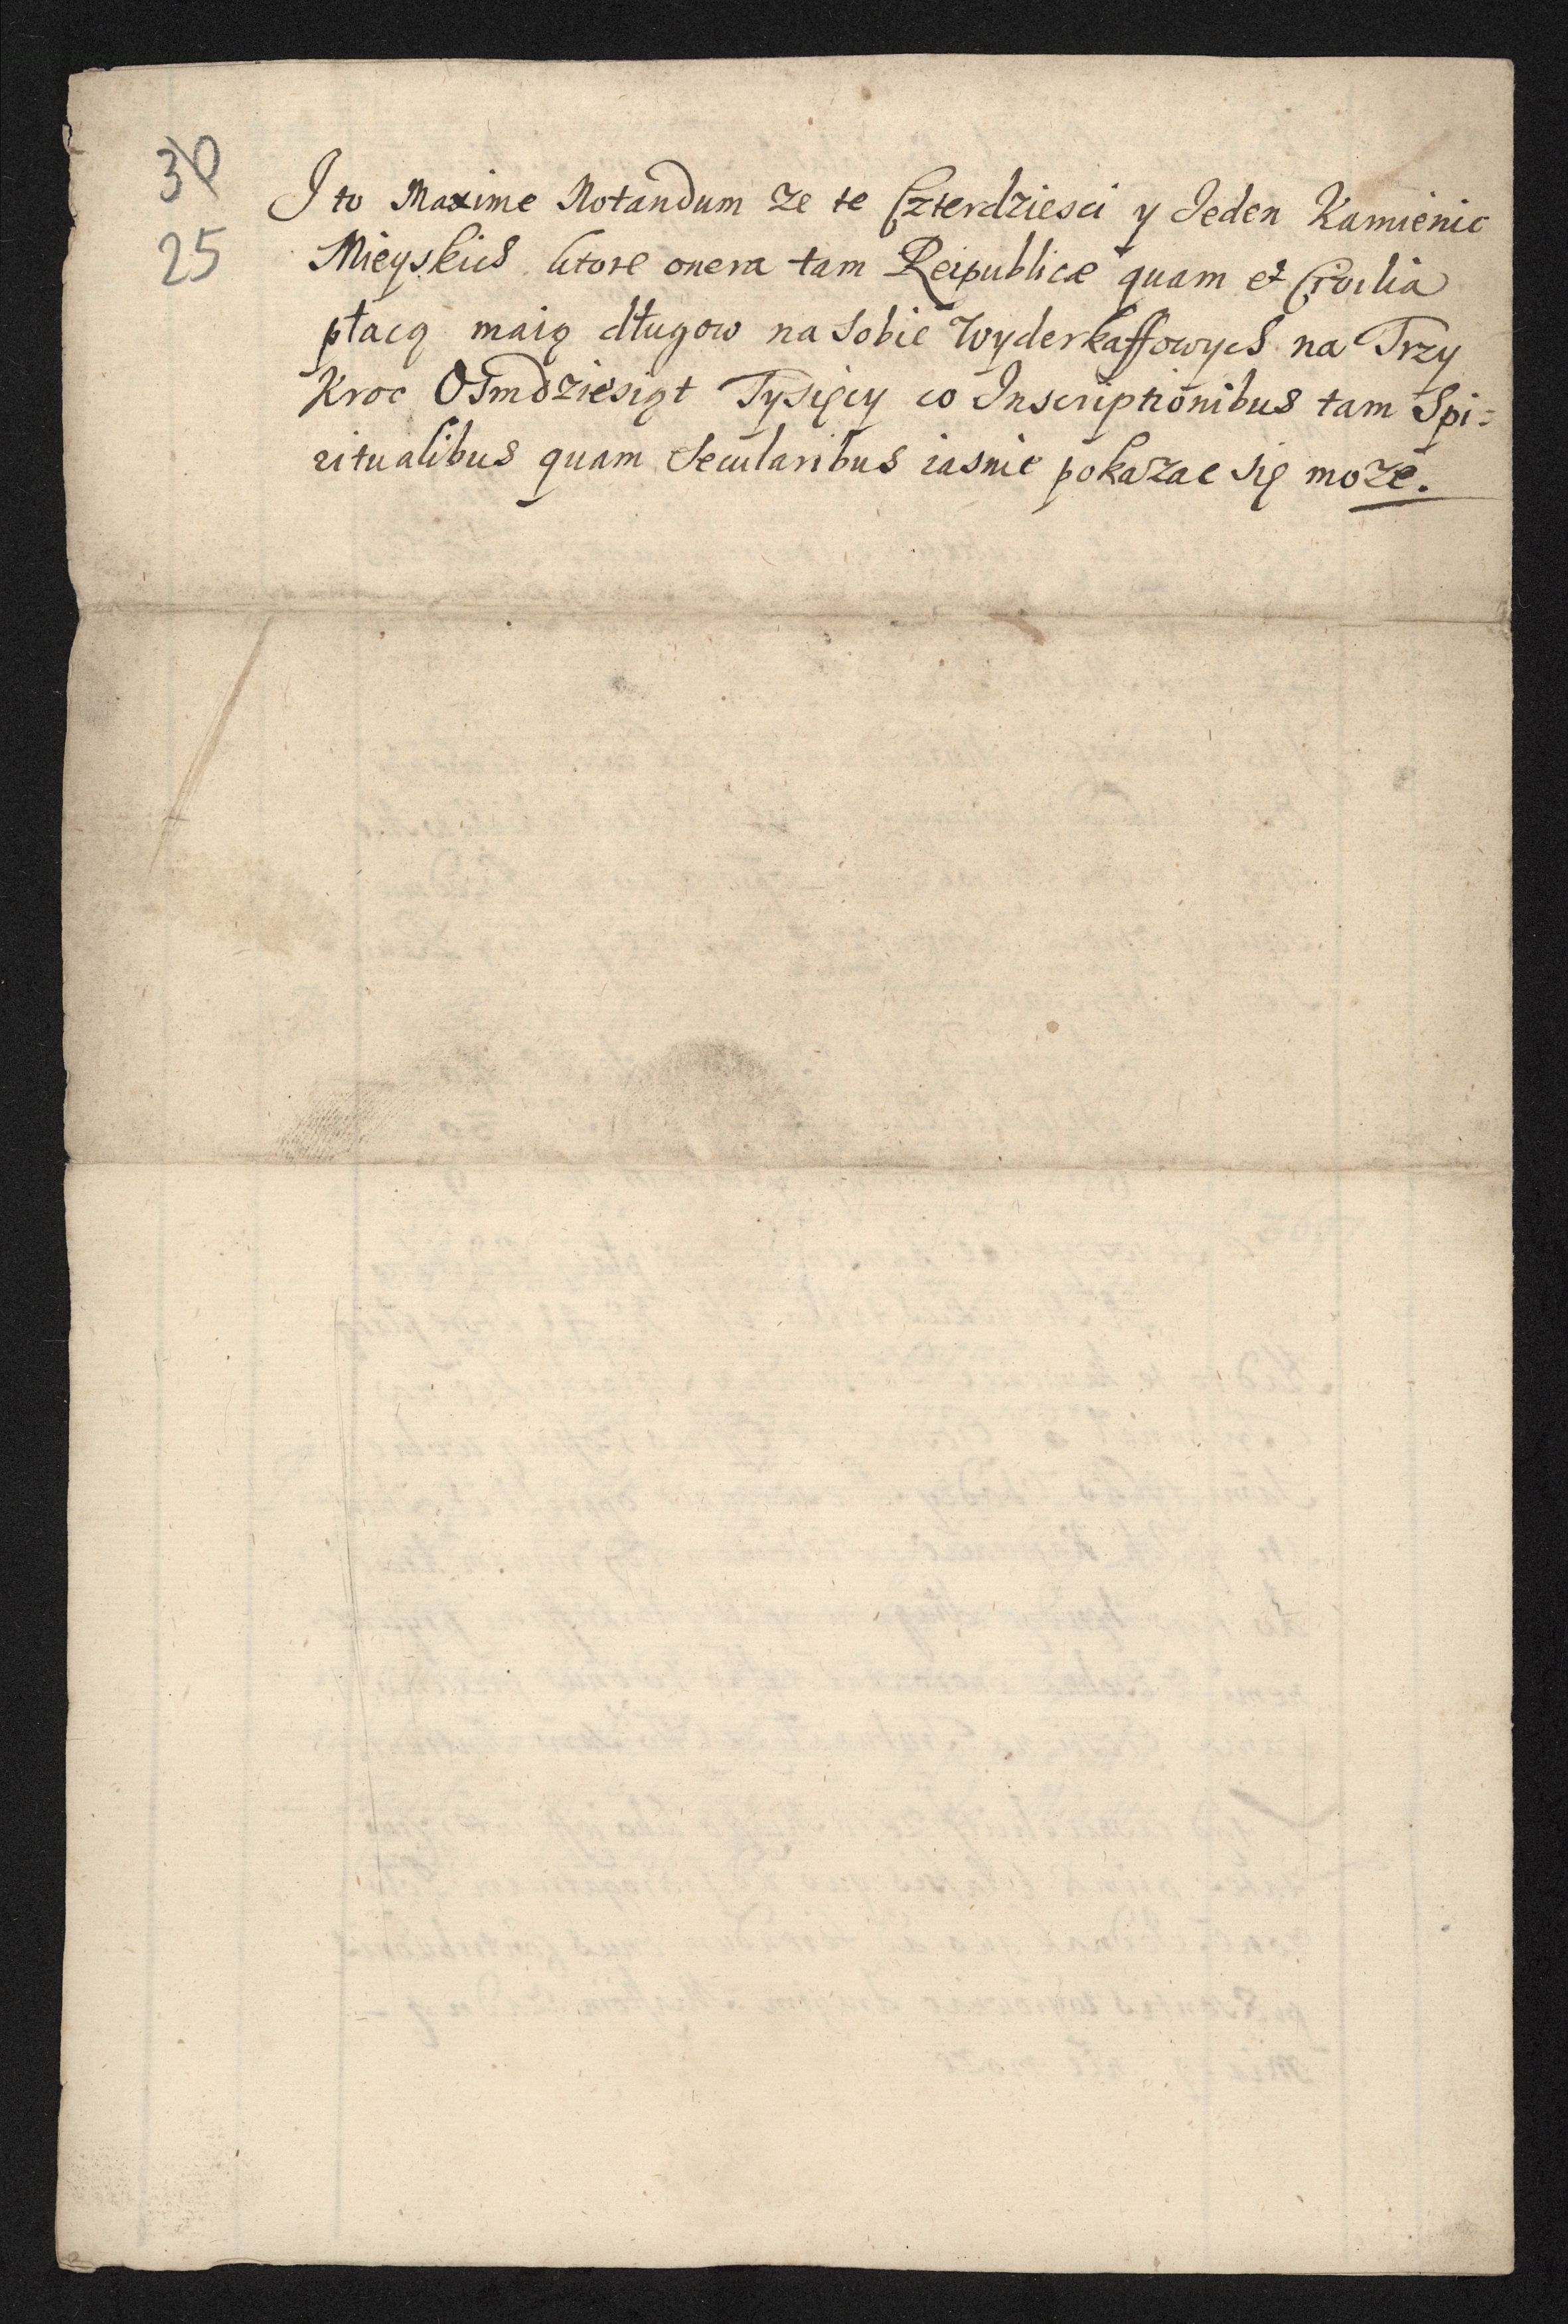 30
25
I to Maxime Notandum ze te Czterdziesci y Jeden Kamienic
Mieyskich ktore onera tam Reipublicæ quam et Civilia
płacą maią długow na sobie Wyderkaffowych na Trzy
Kroc Osmdziesiąt Tysięcy co Inscriptionibus tam Spi=
ritualibus quam Secularibus iasnie pokazac się może.